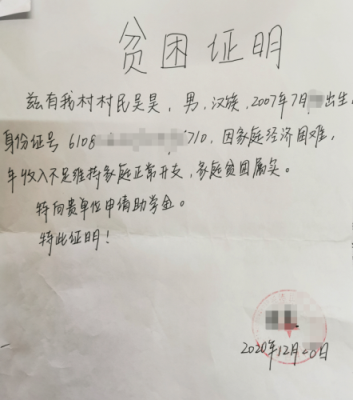 贫困证明
兹有我村村民吴昊，男，汉族，2007年7月 出生
身份证号 6108 710，因家庭经济困难，
年收入不足维持家庭正常开支，家庭贫困属实。
特向贵单位申请助学金。
特此证明！
2020年12月 日